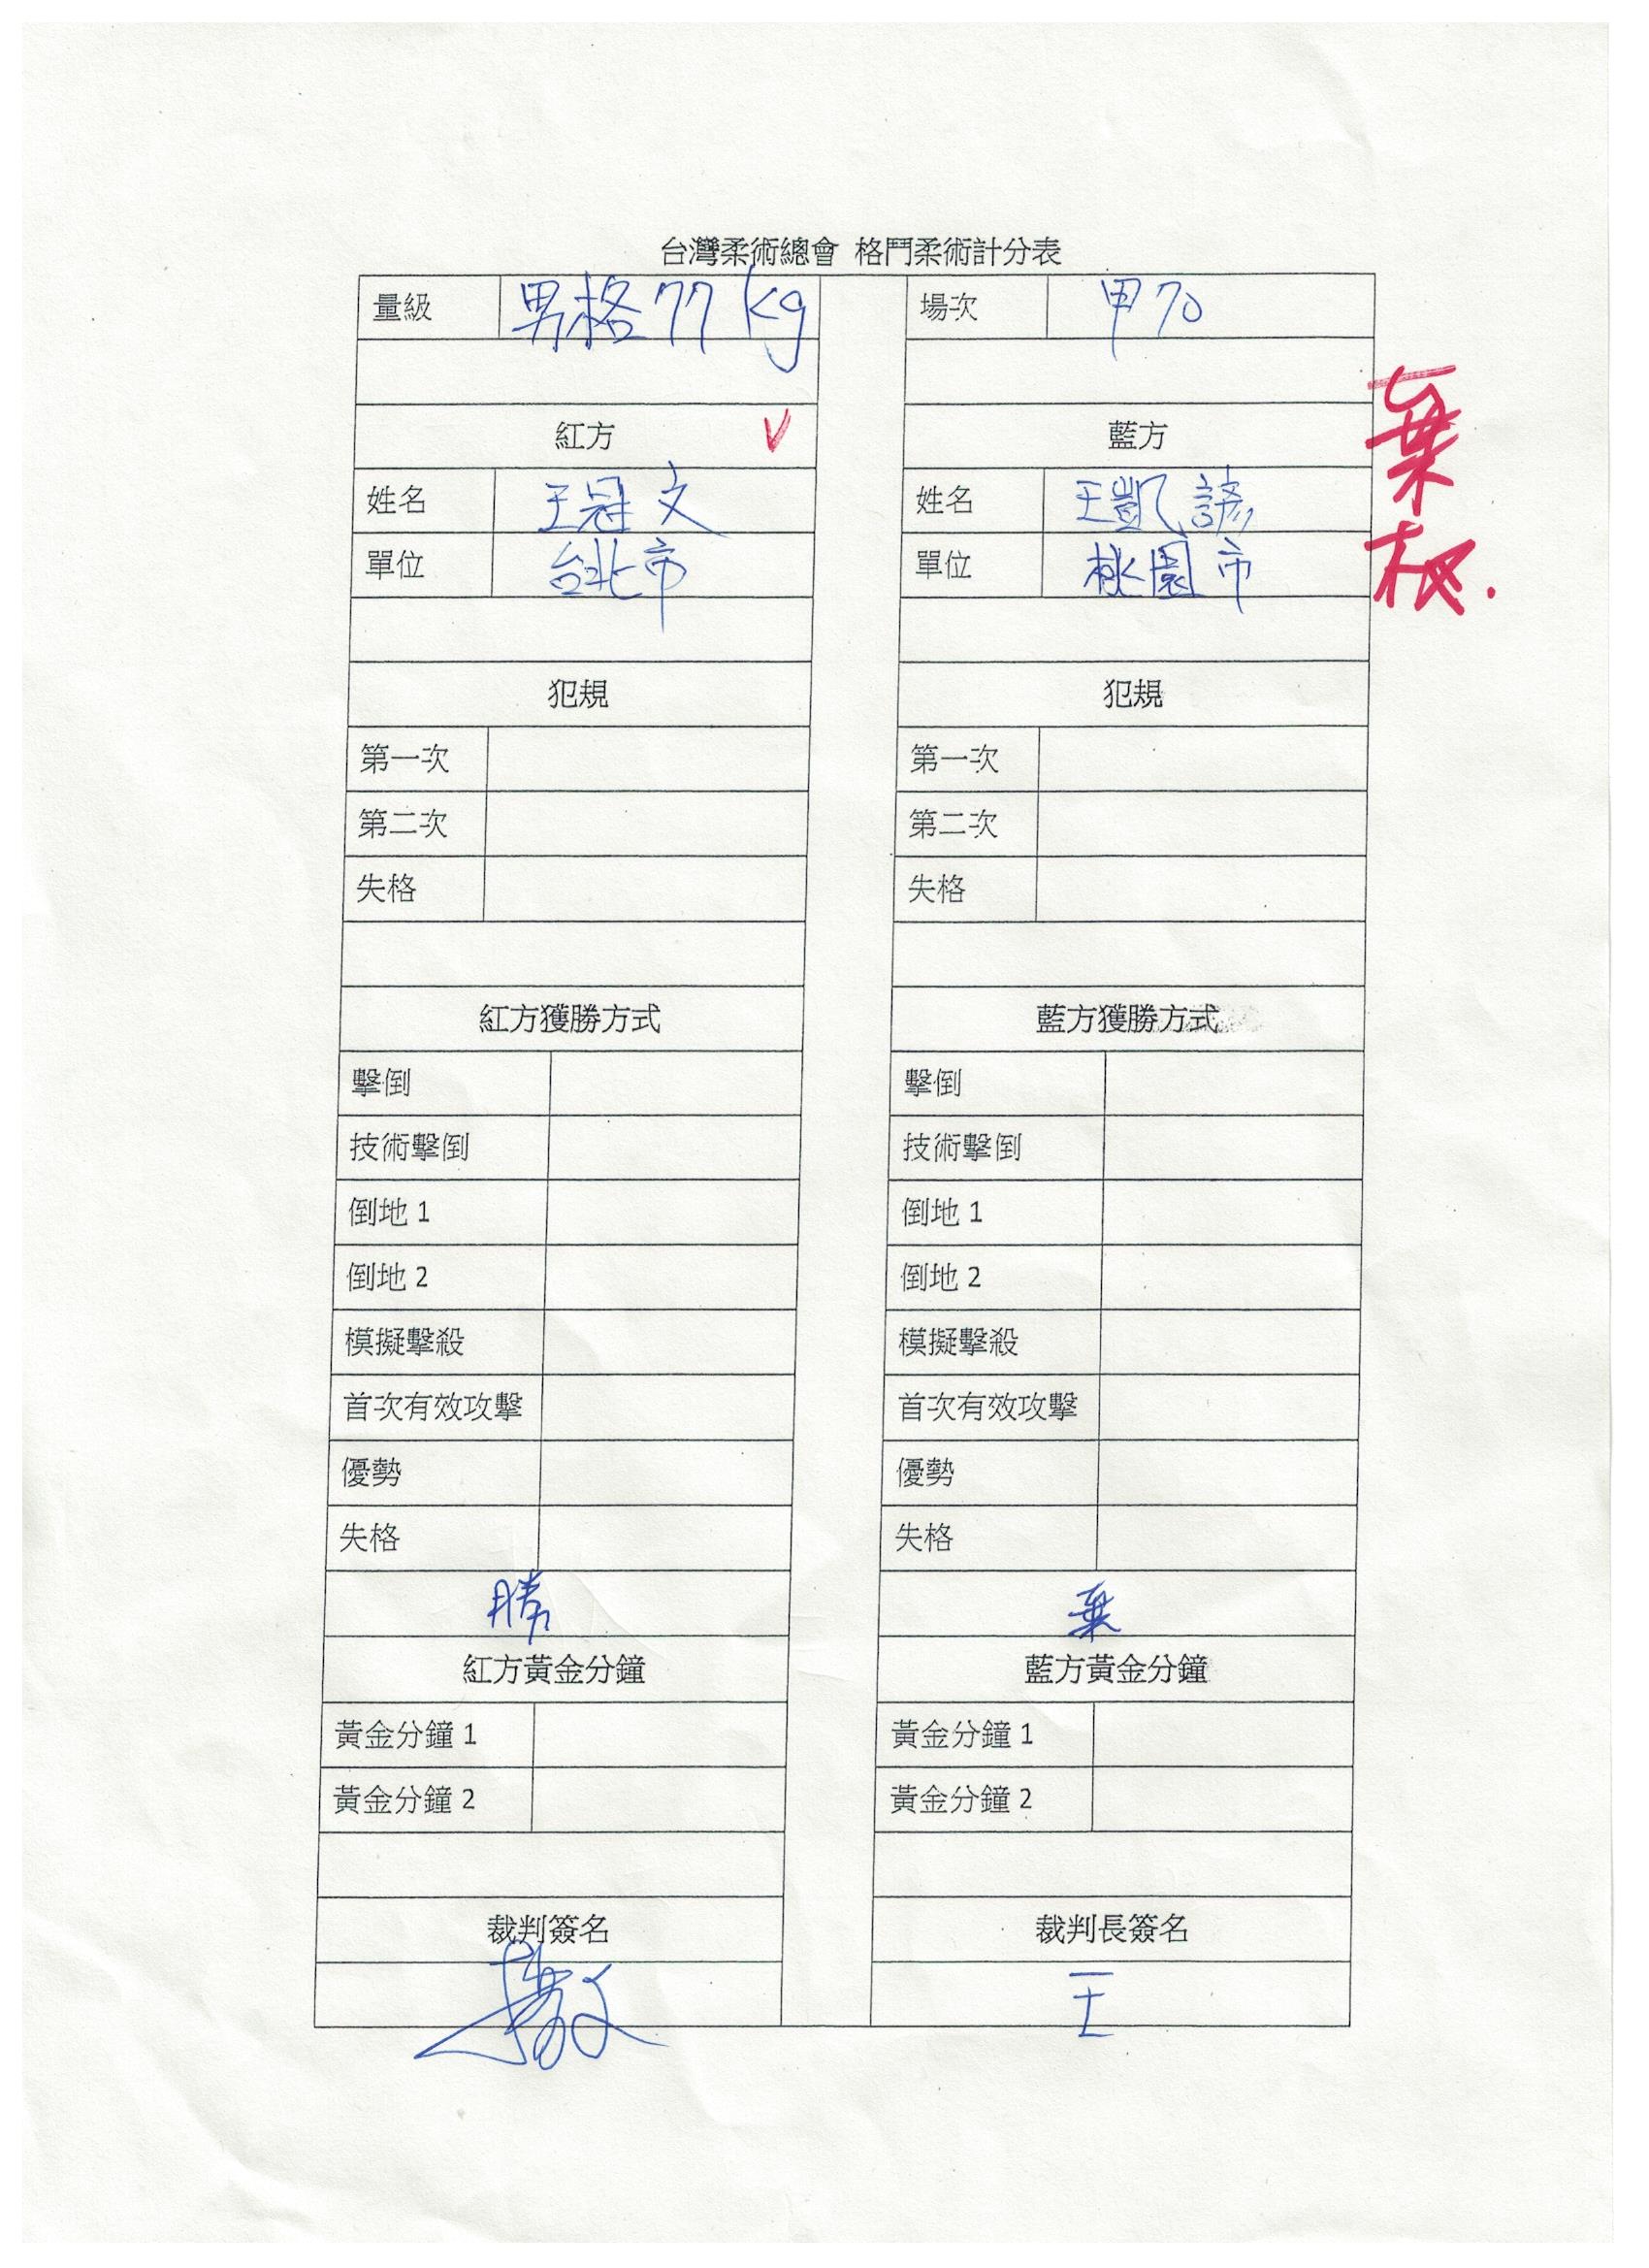 台灣柔術總會 格鬥柔術計分表
量級 男格 77 kg 場次 甲70
紅方 V 藍方
棄权.
姓名 王冠文 姓名 王凱諺
單位 台北市 單位 桃園市
犯規 犯規
第一次 第一次
第二次 第二次
失格 失格
紅方獲勝方式 藍方獲勝方式
擊倒 擊倒
技術擊倒 技術擊倒
倒地 1 倒地 1
倒地 2 倒地 2
模擬擊殺 模擬擊殺
首次有效攻擊 首次有效攻擊
優勢 優勢
失格 失格
勝 棄
紅方黃金分鐘 藍方黃金分鐘
黃金分鐘 1 黃金分鐘 1
黃金分鐘 2 黃金分鐘 2
裁判簽名 裁判長簽名
王